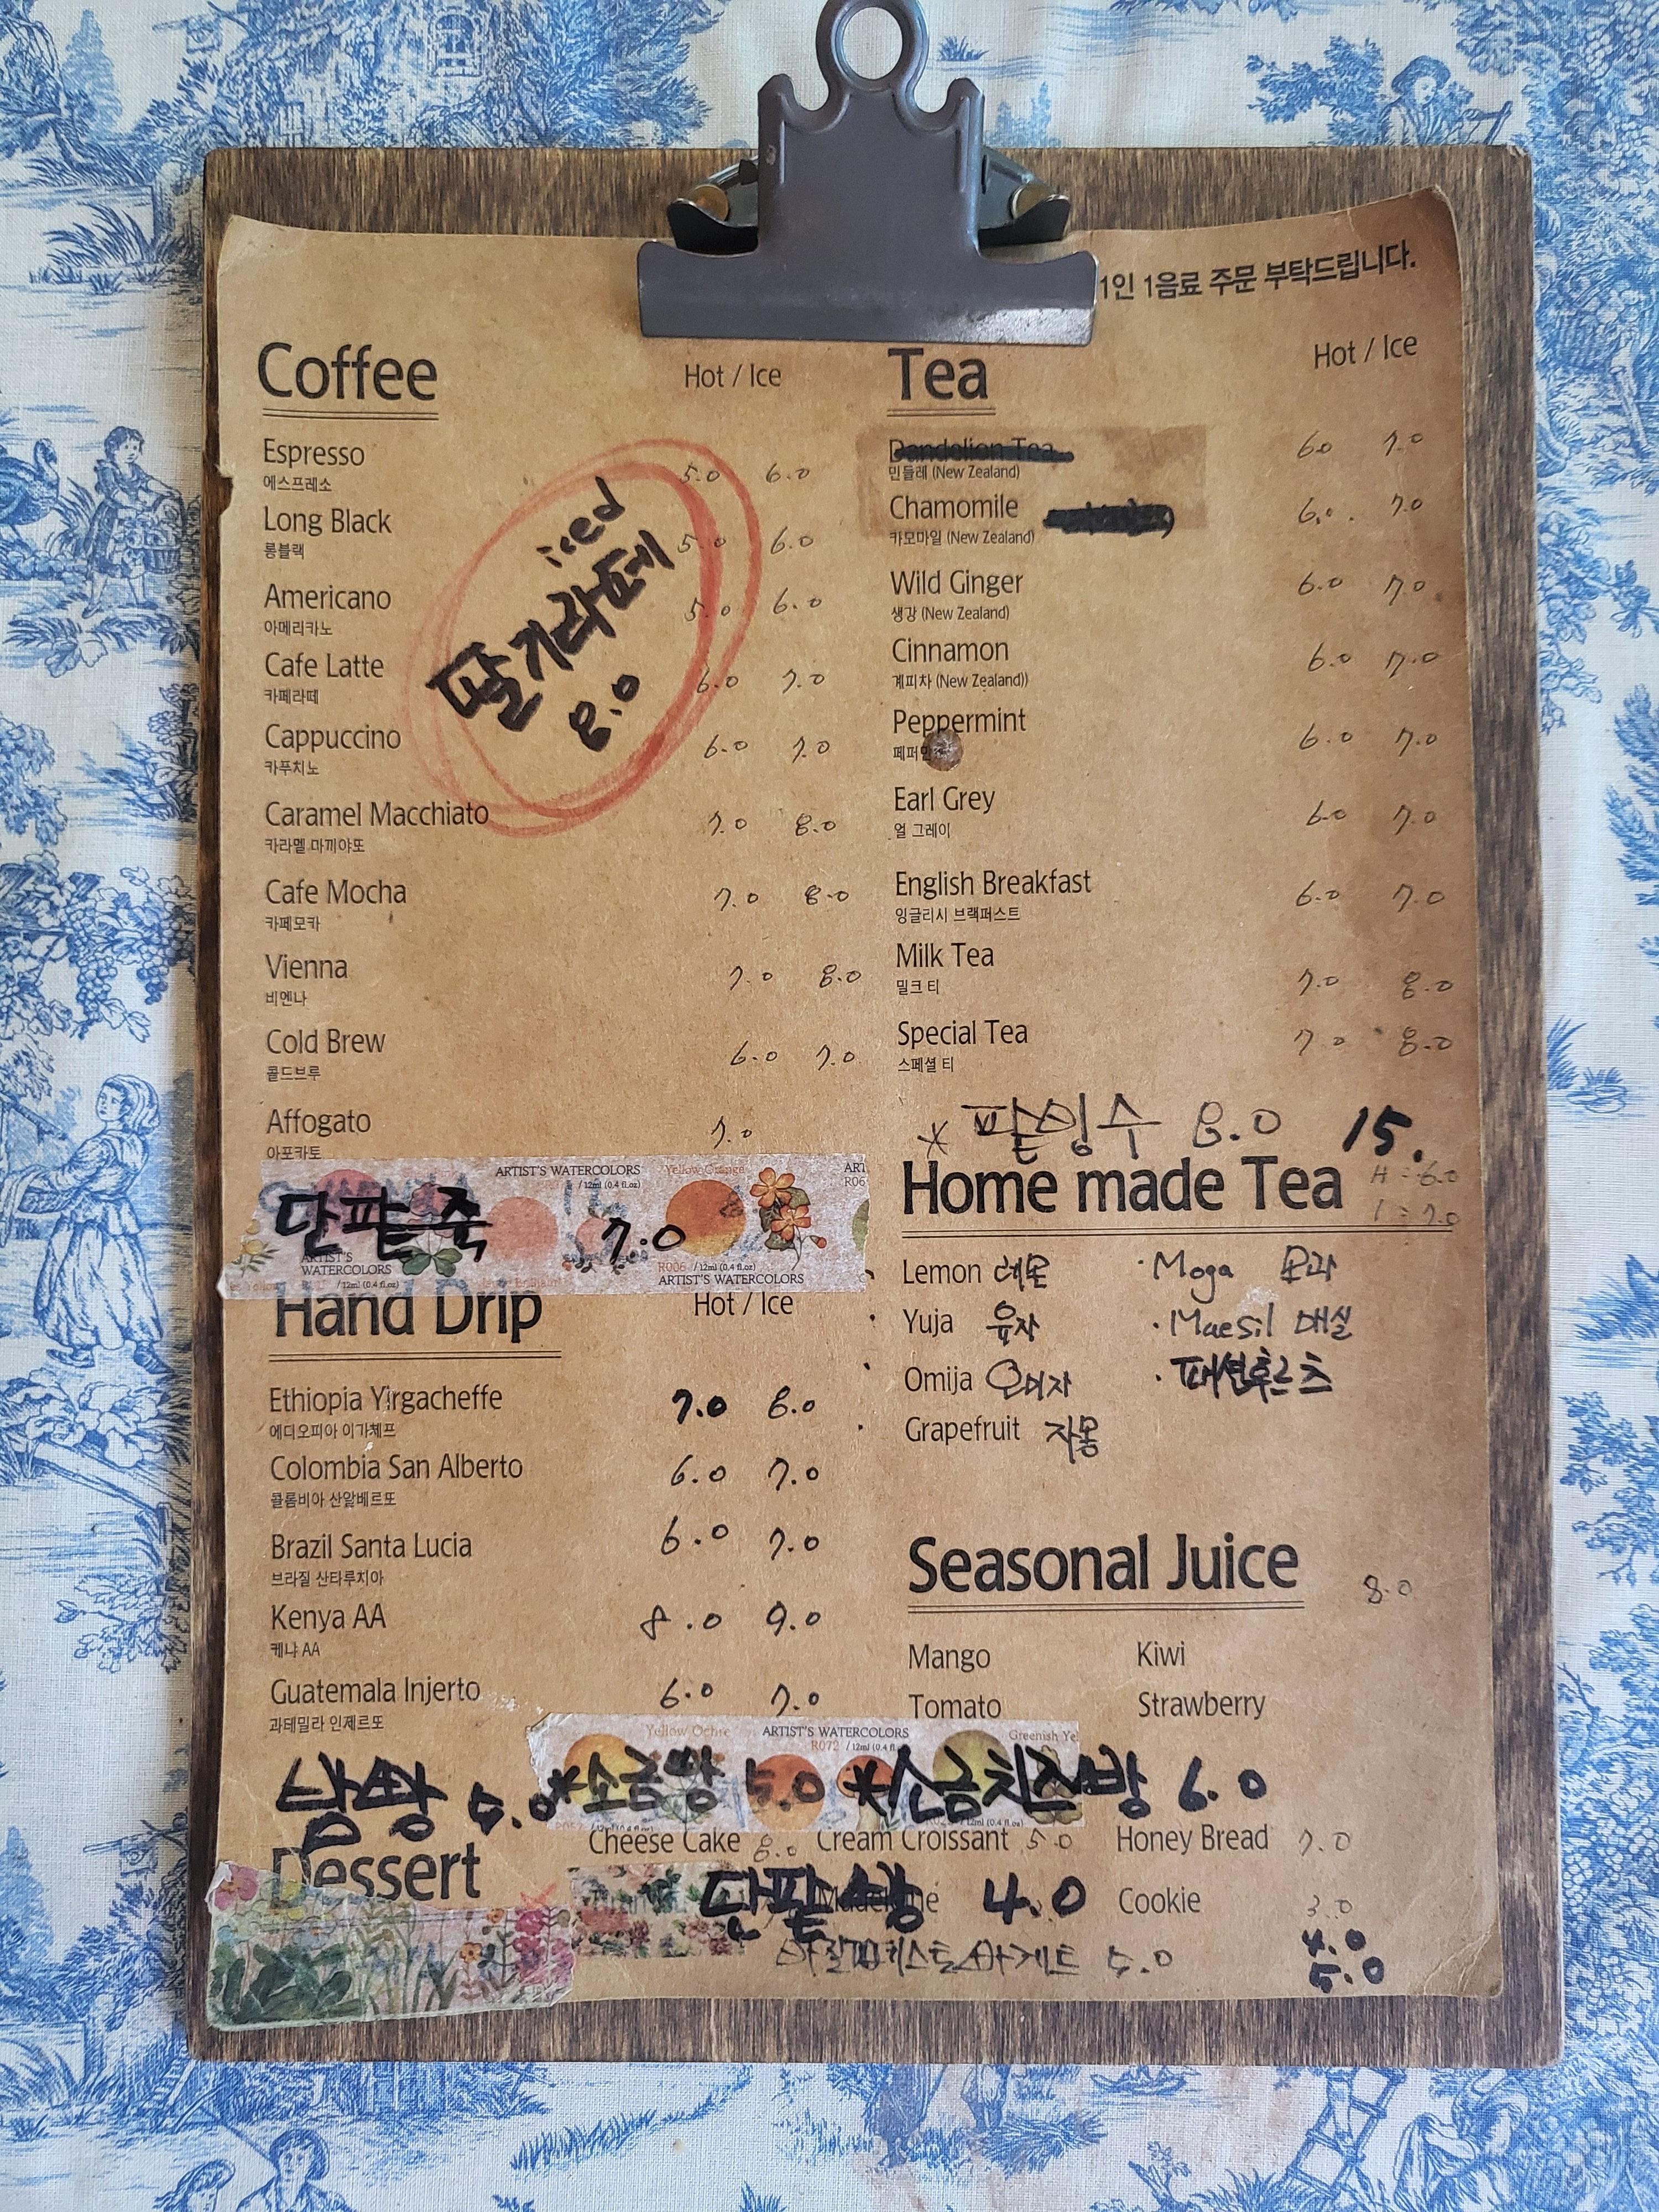 1인 1음료 주문 부탁드립니다.
Coffee Hot / Ice
Espresso 5.0 6.0
에스프레소
Long Black 5.0 6.0
롱블랙
Americano 5.0 6.0
아메리카노
Cafe Latte 6.0 7.0
카페라떼
Cappuccino 6.0 7.0
카푸치노
Caramel Macchiato 7.0 8.0
카라멜 마끼야또
Cafe Mocha 7.0 8.0
카페모카
Vienna 7.0 8.0
비엔나
Cold Brew 6.0 7.0
콜드브루
Affogato 7.0
아포카토
iced
딸기라떼
8.0
ARTIST'S WATERCOLORS Yellow Orange
/ 12ml (0.4 fl.oz)
단팥죽 7.0
ARTIST'S
WATERCOLORS R006 / 12ml (0.4 fl.oz)
/ 12ml (0.4 fl.oz) ARTIST'S WATERCOLORS
Hand Drip Hot / Ice
Ethiopia Yirgacheffe 7.0 8.0
에디오피아 이가체프
Colombia San Alberto 6.0 7.0
콜롬비아 산알베르또
Brazil Santa Lucia 6.0 7.0
브라질 산타루치아
Kenya AA 8.0 9.0
케냐 AA
Guatemala Injerto 6.0 7.0
과테밀라 인제르또
Tea Hot / Ice
Dandelion Tea 6.0 7.0
민들레 (New Zealand)
Chamomile 6.0 7.0
카모마일 (New Zealand)
Wild Ginger 6.0 7.0
생강 (New Zealand)
Cinnamon 6.0 7.0
계피차 (New Zealand))
Peppermint 6.0 7.0
페퍼민
Earl Grey 6.0 7.0
얼 그레이
English Breakfast 6.0 7.0
잉글리시 브랙퍼스트
Milk Tea 7.0 8.0
밀크 티
Special Tea 7.0 8.0
스페셜 티
* 팥빙수 8.0 15.
Home made Tea H : 6.0
I : 7.0
Lemon 레몬 · Moga 모과
Yuja 유자 · Maesil 매실
Omija 오미자 · 패션후르츠
Grapefruit 자몽
Seasonal Juice 8.0
Mango Kiwi
Tomato Strawberry
Yellow Ochre ARTIST'S WATERCOLORS Greenish Yel
R072 / 12ml (0.4 fl.
5.0 *소금빵 5.0 *소금치즈빵 6.0
Dessert
Cheese Cake 8.0 Cream Croissant 5.0 Honey Bread 7.0
단팥빵 4.0 Cookie 3.0
4.0
바질페스토바게트 5.0 5.0